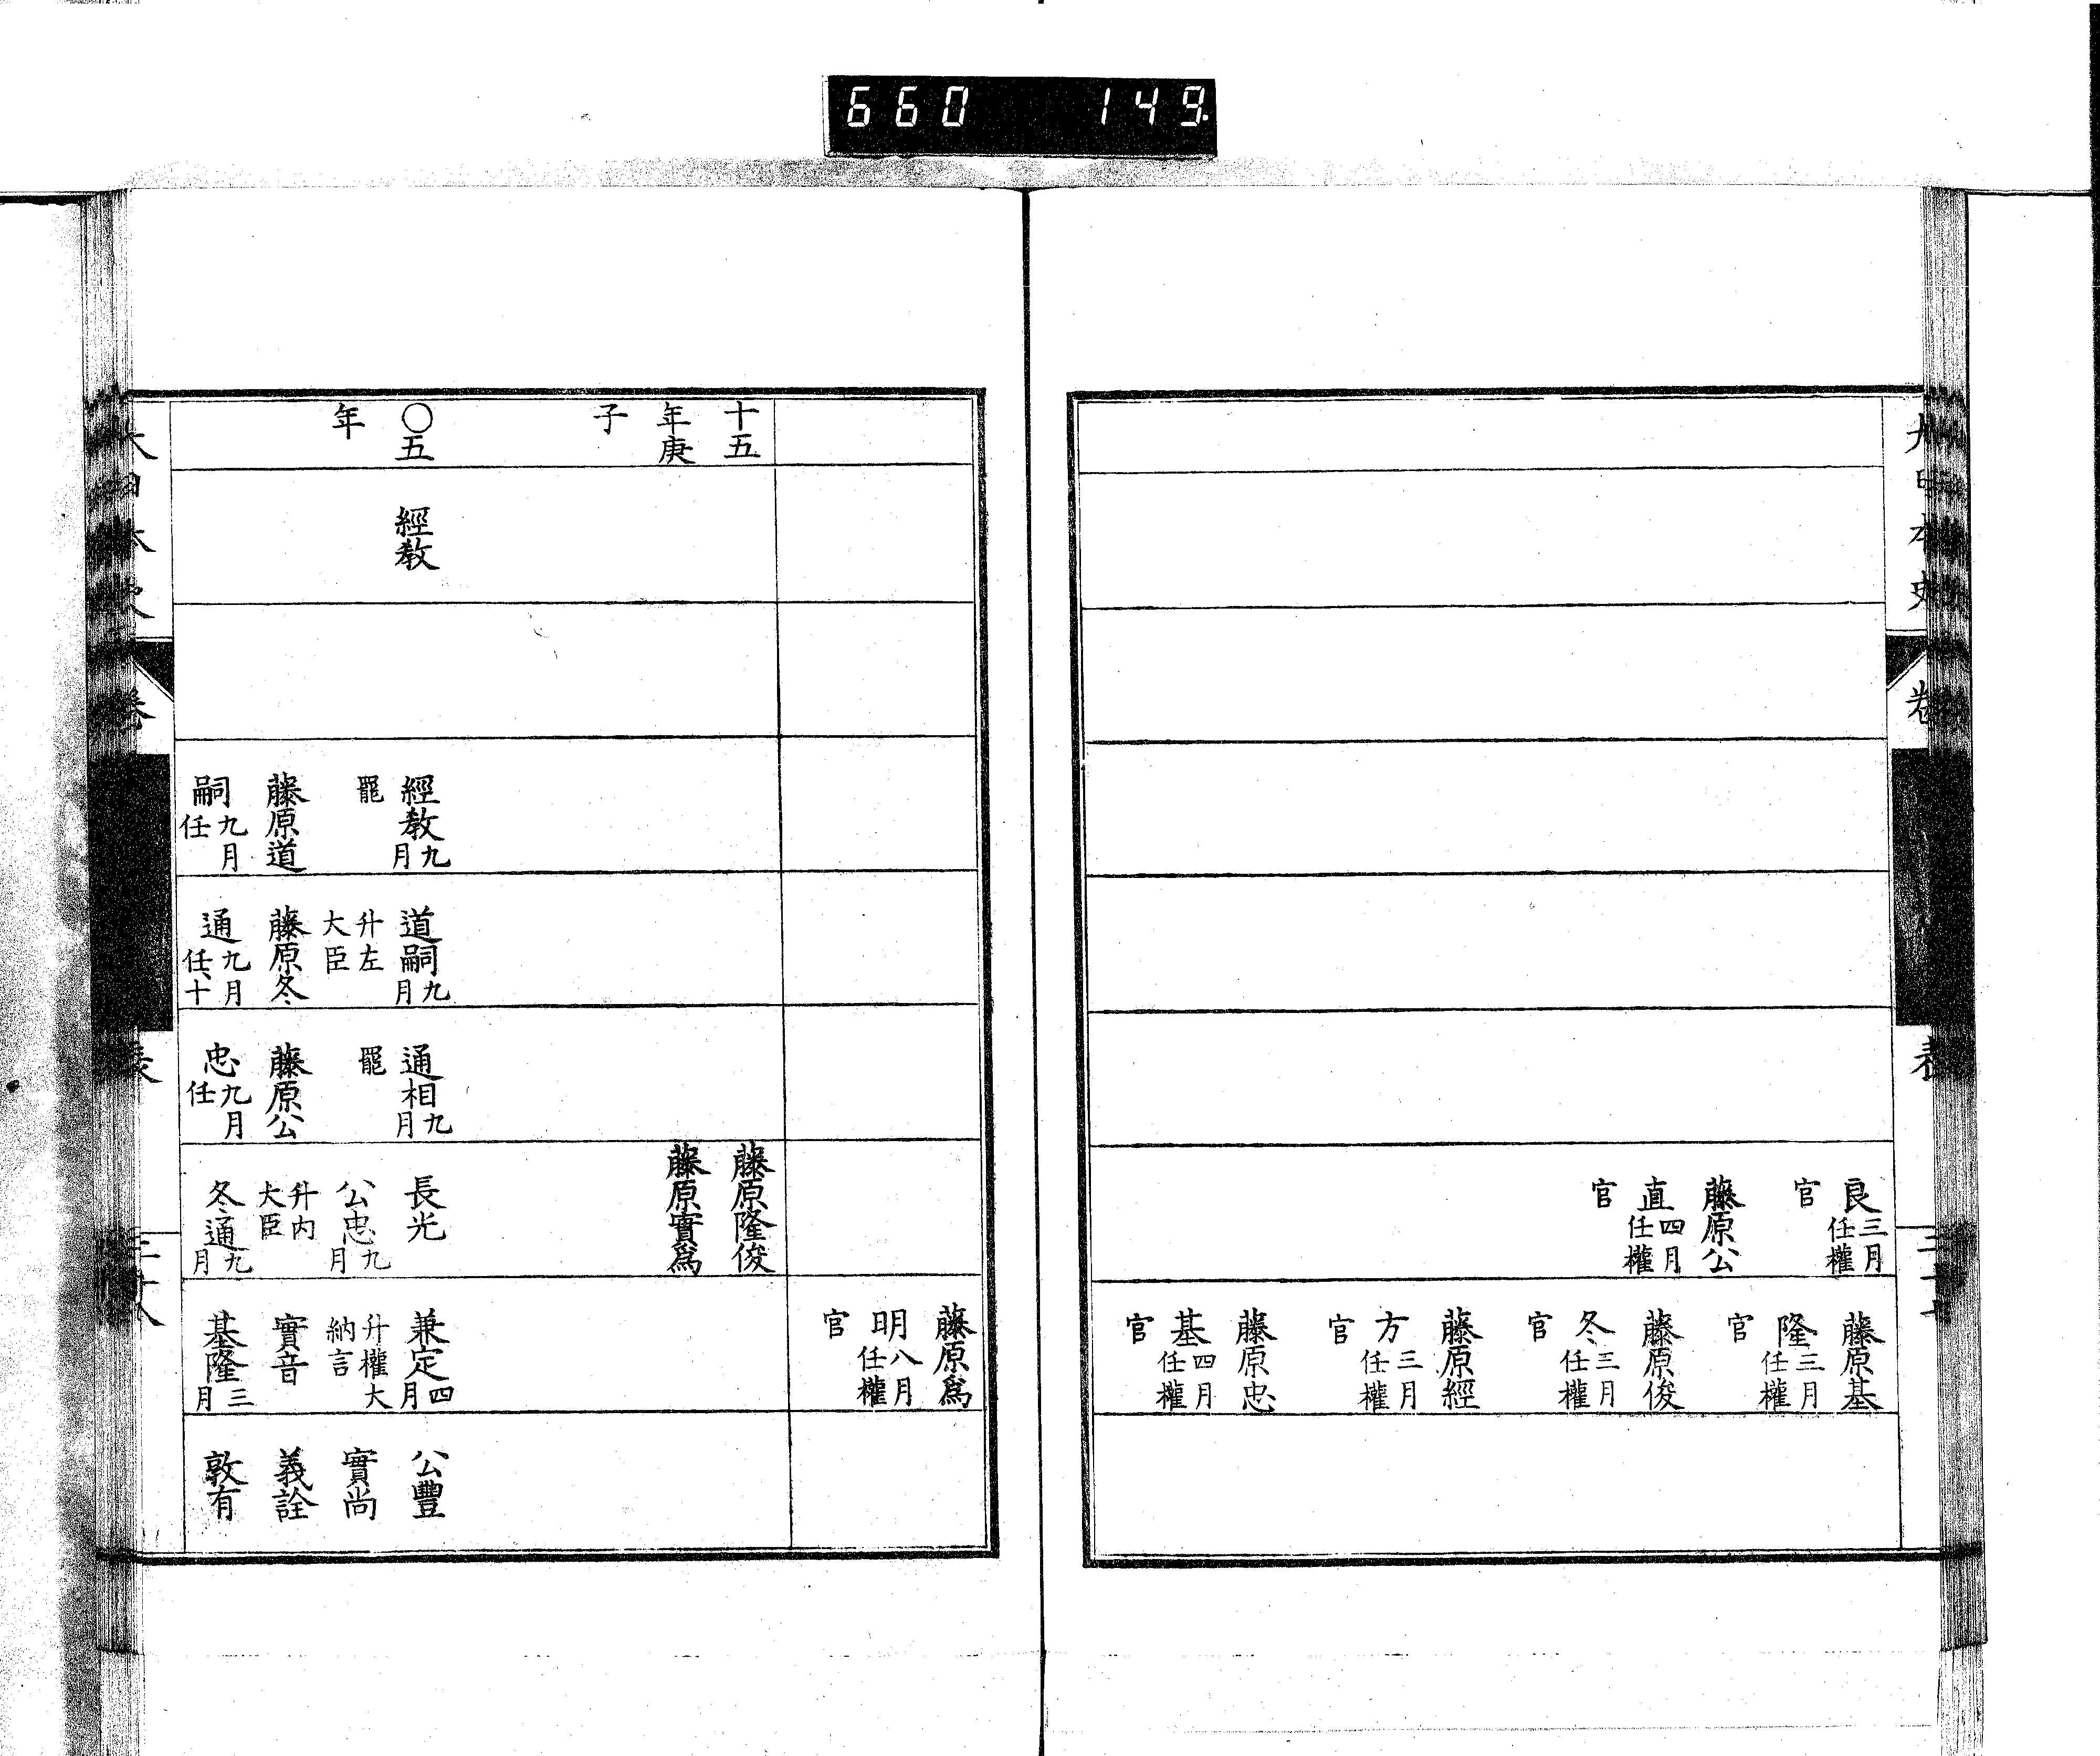 660 149
良三月任權官
藤原公直四月任權官
藤原基隆三月任權官
藤原俊冬三月任權官
藤原經方三月任權官
藤原忠基四月任權官
藤原爲明八月任權官
十五
年庚
子
〇五
年
經教
經教九月
罷
藤原道
嗣九月任
道嗣九月
升左大臣
藤原冬
通九月任、十
通相九月
罷
藤原公
忠九月任
藤原隆俊
藤原實爲
長光
公忠九月
升内大臣
冬通九月
兼定四月
升權大納言
實音
基隆三月
公豐
實尚
義詮
敦有